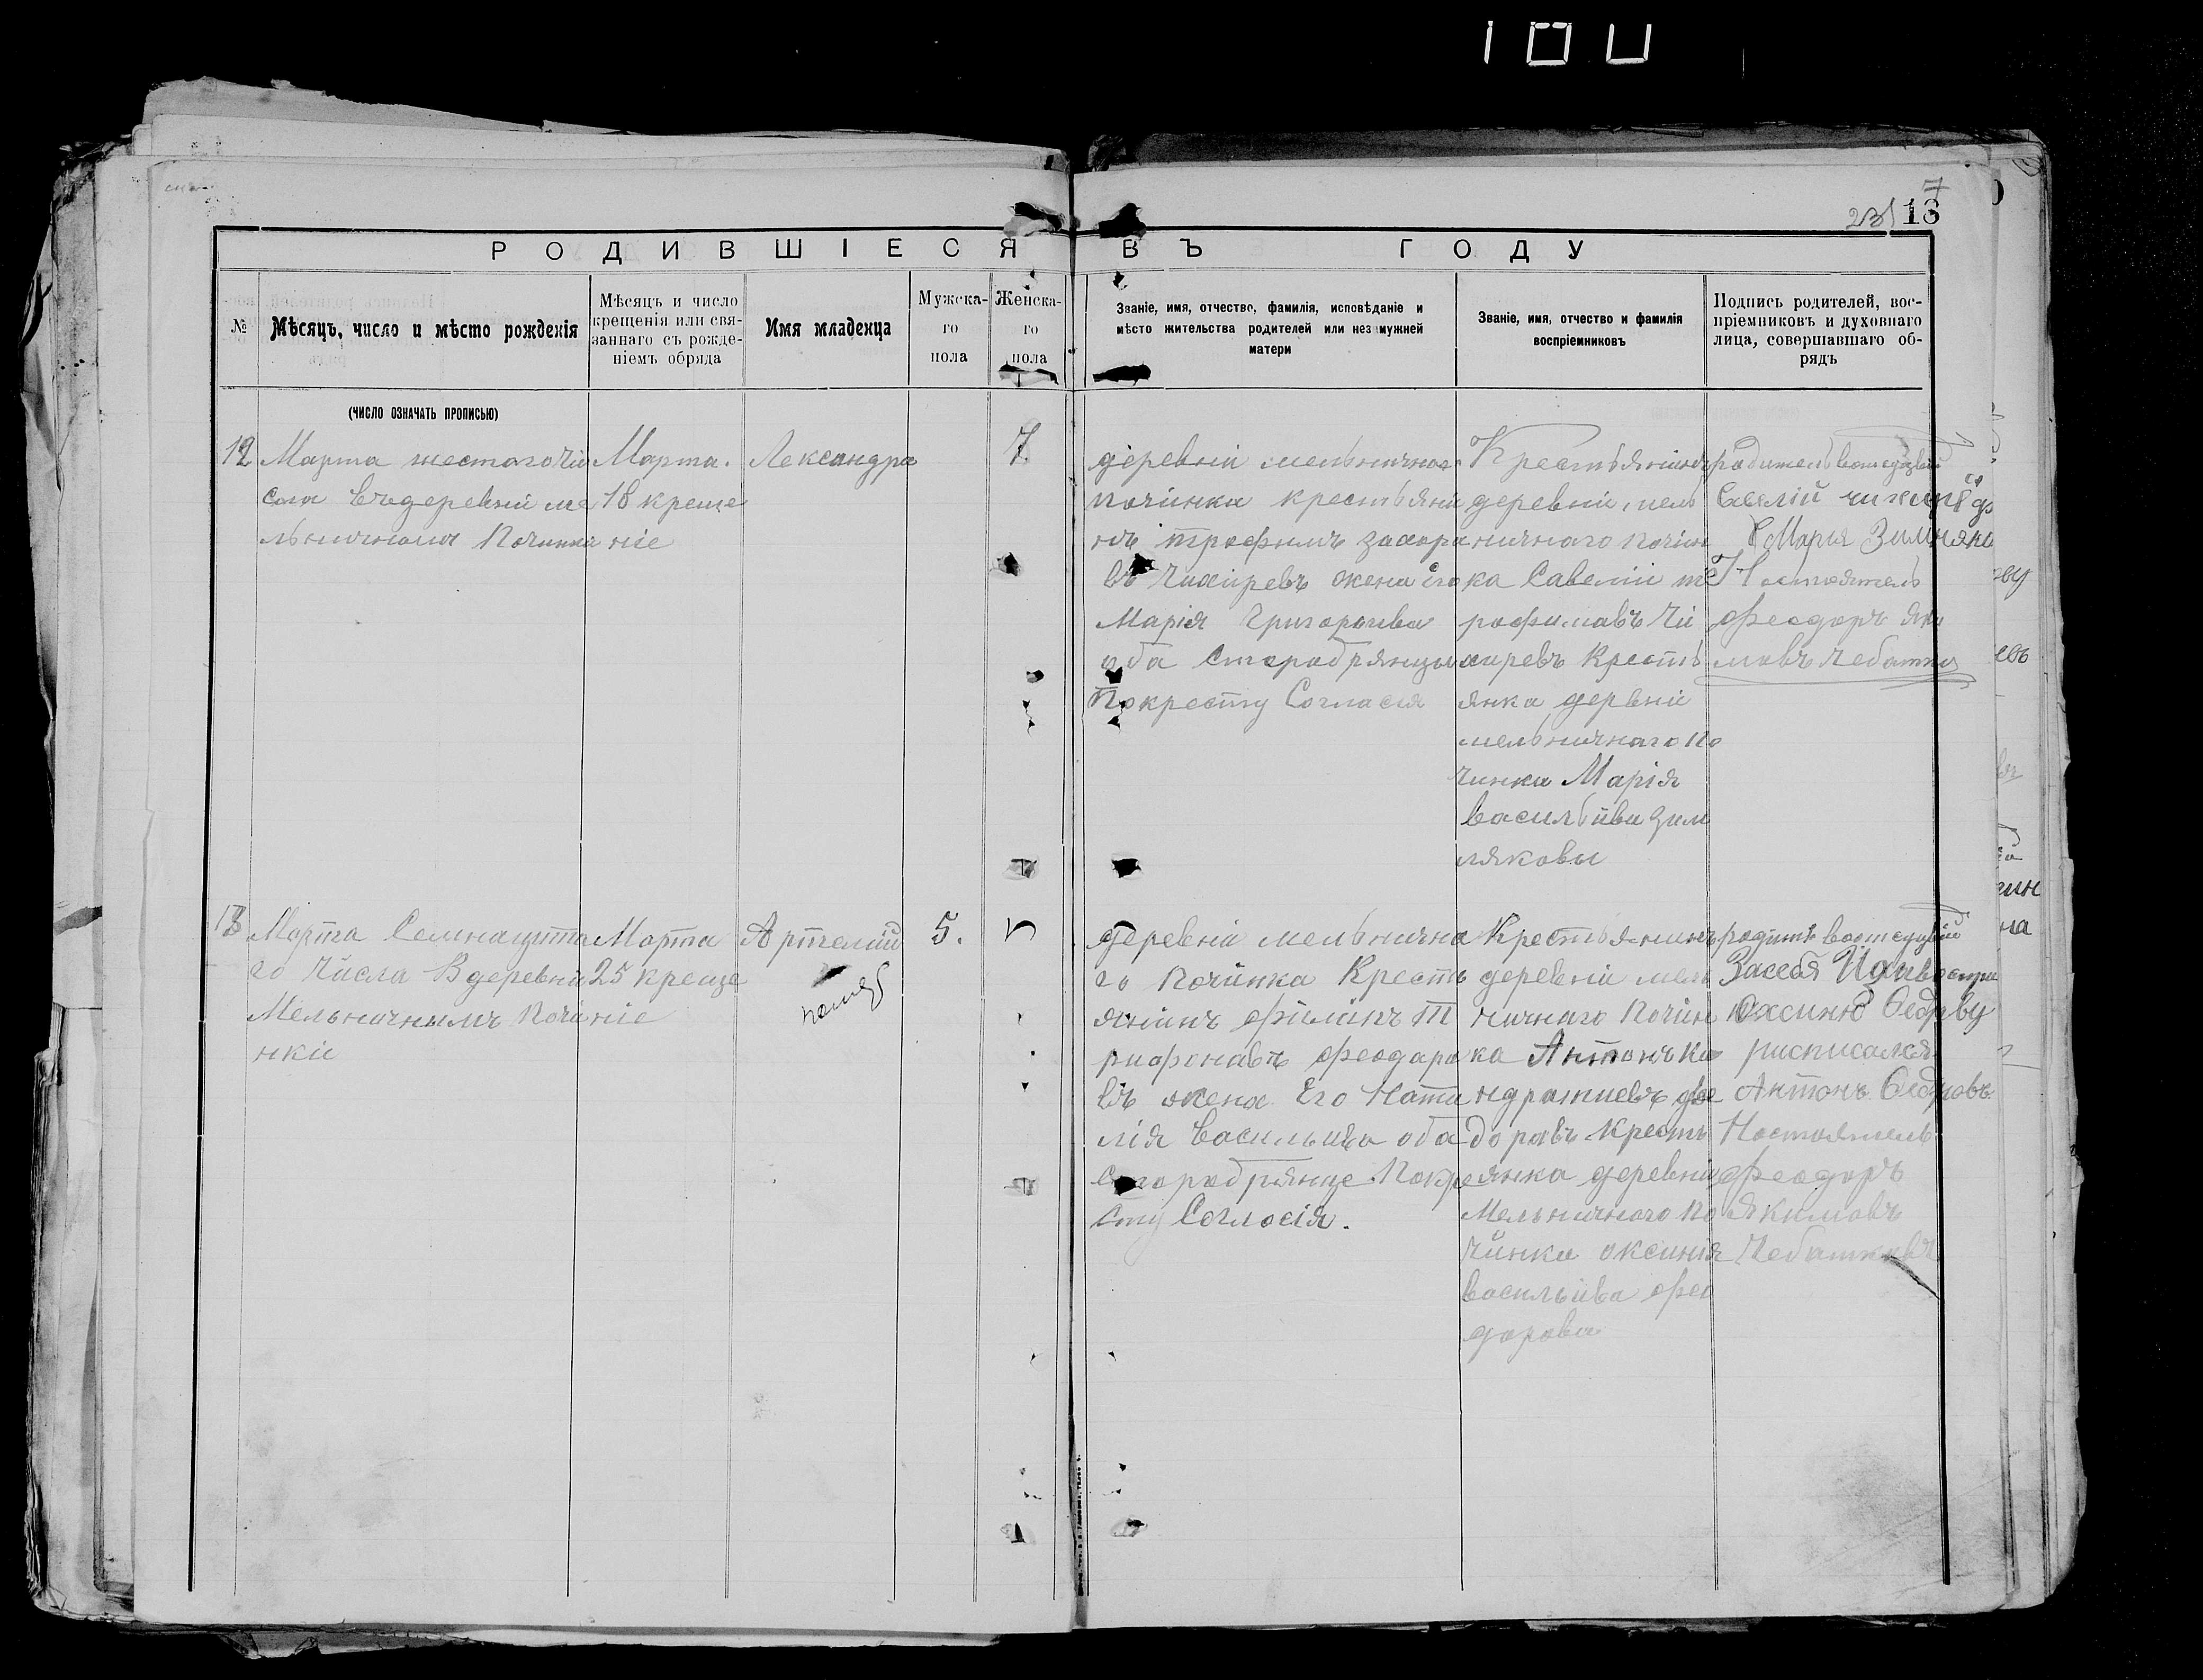 180
7
231 13
РОДИВШІЕСЯ ВЪ ГОДУ
№
Мѣсяцъ, число и мѣсто рожденія
Мѣсяцъ и число
крещенія или свя-
заннаго съ рожде-
ніемъ обряда
Имя младенца
Мужска-
го
пола
Женска-
го
пола
Званіе, имя, отчество, фамилія, исповѣданіе и
мѣсто жительства родителей или незамужней
матери
Званіе, имя, отчество и фамилія
воспріемниковъ
Подпись родителей, вос-
пріемниковъ и духовнаго
лица, совершавшаго об-
рядъ
(ЧИСЛО ОЗНАЧАТЬ ПРОПИСЬЮ)
12
Марта шестогочи
сла въ деревніи ме
льничномъ Починки
Марта.
18 креще
ніе
Лександра
7
деревніи мельничнаг
починка крестьяни
нъ трофимъ захара
въ Чихиревъ жена его
Марія Григорьева
оба старобрянцы
Покресту Согласія
Крестьянинъ
деревніи мель
ничнаго почин
ка Савеліи т
рофимавъ Чи
хиревъ Кресть
янка дервніи
мельничнаго по
чинка Марія
васильйва зим
ляковы
родитель
Савелій
Марія
Настоятель
Феодоръ Яки
мавъ Чебатко
13
Марта Семнацита
го Числа В деревніи
Мельничнымъ Почи
нкіи
Марта
25 креще
ніе
Артемій
5.
деревніи мельнична
го Починка Кресть
янинъ филипъ Т
рифонавъ феодаро
въ жена Его Ната
лія Васильива оба
старобрянце Покре
сту Согласія.
Крестьянинъ
деревніи мель
ничнаго Почин
ка Антонъ Ко
ндратиевъ фе
доравъ Кресть
янка деревніи
Мельничнаго по
чинка оксинія
васильива фео
дорова
Оксиню Федрву
расписался
Антонъ Федровъ
Настоятель
Феодоръ
Якимовъ
Чебатковъ